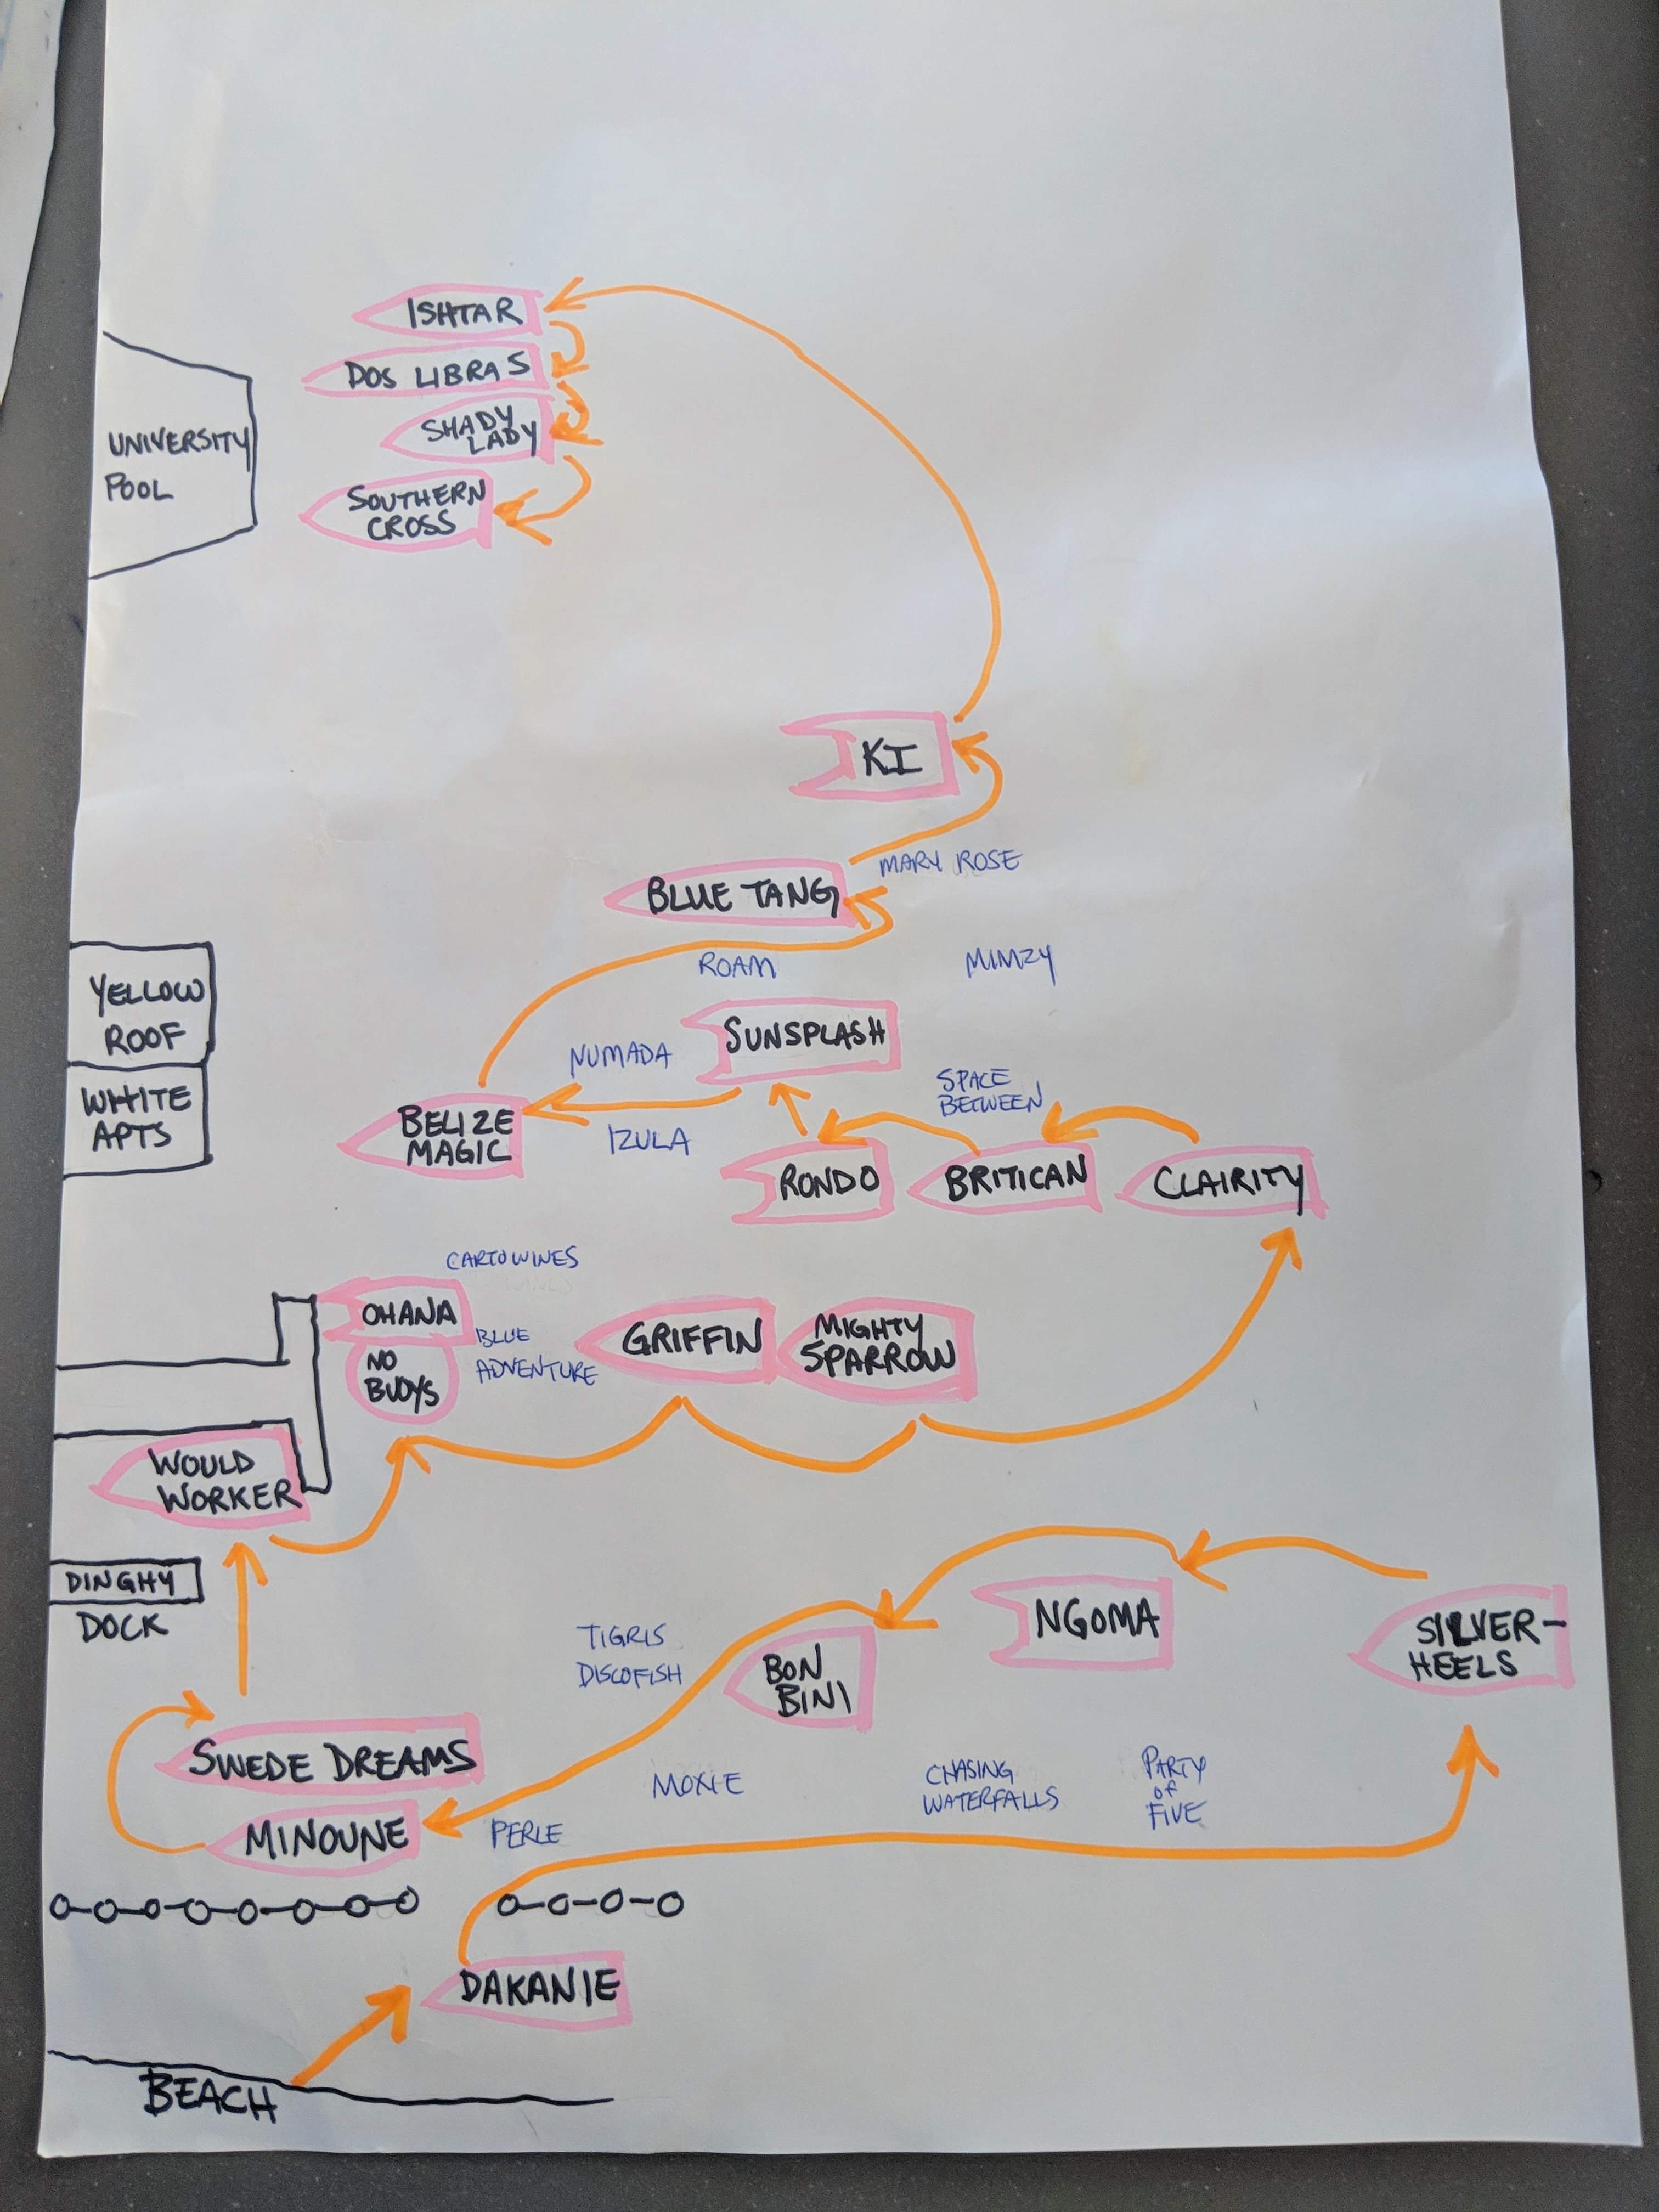 ISHTAR
DOS LIBRAS
SHADY
LADY
UNIVERSITY
POOL
SOUTHERN
CROSS
KI
MARY ROSE
BLUE TANG
ROAM
MIMZY
YELLOW
ROOF
SUNSPLASH
NUMADA
WHITE
APTS
SPACE
BETWEEN
BELIZE
MAGIC
IZULA
RONDO
BRITICAN
CLAIRITY
CARTOWINES
OHANA
NO
BUOYS
BLUE
ADVENTURE
GRIFFIN
MIGHTY
SPARROW
WOULD
WORKER
DINGHY
DOCK
TIGRIS
DISCOFISH
BON
BINI
NGOMA
SILVER-
HEELS
SWEDE DREAMS
MOXIE
CHASING
WATERFALLS
PARTY
OF
FIVE
MINOUNE
PERLE
DAKANIE
BEACH